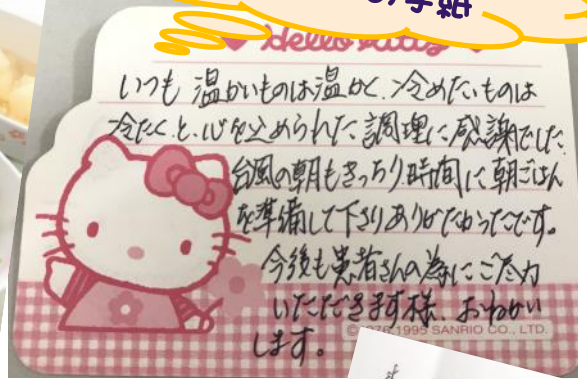 の手紙
Hello Kitty
いつも温かいものは温かく、冷めたいものは
冷たくと、心を込められた調理に感謝でした。
台風の朝もきっちり時間に朝ごはん
を準備して下さりありがたかったです。
今後も患者さんの為にご尽力
いただきます様、おねがい
します。
©1976,1995 SANRIO CO., LTD.